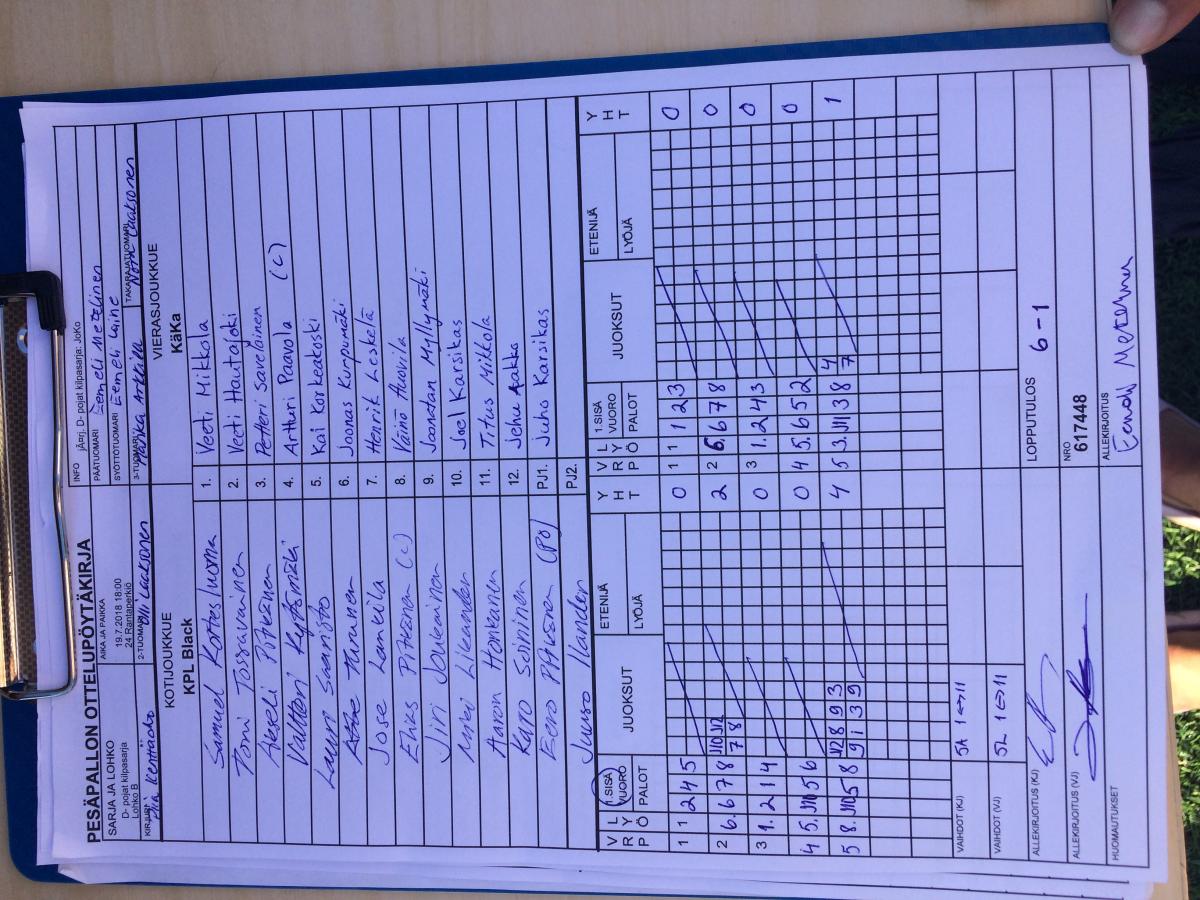 PESÄPALLON OTTELUPÖYTÄKIRJA
INFO jÄrj. D- pojat kilpasarja: JoKo
SARJA JA LOHKO
D- pojat kilpasarja
Lohko B
AIKA JA PAIKKA
19.7.2018 18:00
24 Rantaperkiö
PÄÄTUOMARI Eemeli Metelinen
SYÖTTÖTUOMARI Eemeli Laine
KIRJURI Pia Kenttäaho
2-TUOMARI Olli Laaksonen
3-TUOMARI Marika Arkkila
TAKARAJATUOMARI Nora Laaksonen
KOTIJOUKKUE
KPL Black
VIERASJOUKKUE
KäKa
Samuel Kortesluoma 1. Veeti Mikkola
Tomi Tossavainen 2. Veeti Hautajoki
Akseli Pitkänen 3. Petteri Savelainen
Valtteri Kystömäki 4. Artturi Paavola (C)
Lauri Saaristo 5. Kai Korkeakoski
Turunen 6. Joonas Kurpumäki
Jose Lankila 7. Henrik Leskelä
Elias Pitkänen (c) 8. Väinö Huovila
Jiri Joukainen 9. Joonatan Myllymäki
Miki Likander 10. Joel Karsikas
Aaron Honkanen 11. Titus Mikkola
Karo Soininen 12. Jehu Aakko
Eero Pitkänen (PO) PJ1. Juho Karsikas
Juuso Ilander PJ2.
V R Ö L Y 1.SISÄ VUORO PALOT JUOKSUT ETENIJÄ LYÖJÄ Y H T V R Ö L Y 1.SISÄ VUORO PALOT JUOKSUT ETENIJÄ LYÖJÄ Y H T
1 1 2 4 5 0 1 1 1 2 3 0
2 6. 6 7 8 J10 J12 2 2 6. 6 7 8 0
7 8
3 1. 2 1 4 0 3 1. 2 4 3 0
4 5. J10 5 6 0 4 5. 6 5 2 0
5 8. J10 5 8 J12 8 9 3 4 5 3. J11 3 8 4 1
9 1 3 9 7
VAIHDOT (KJ) 5A 1<->11
VAIHDOT (VJ) 5L 1<->11
ALLEKIRJOITUS (KJ)
LOPPUTULOS 6-1
ALLEKIRJOITUS (VJ)
NRO
617448
HUOMAUTUKSET
ALLEKIRJOITUS
Eemeli Metelinen